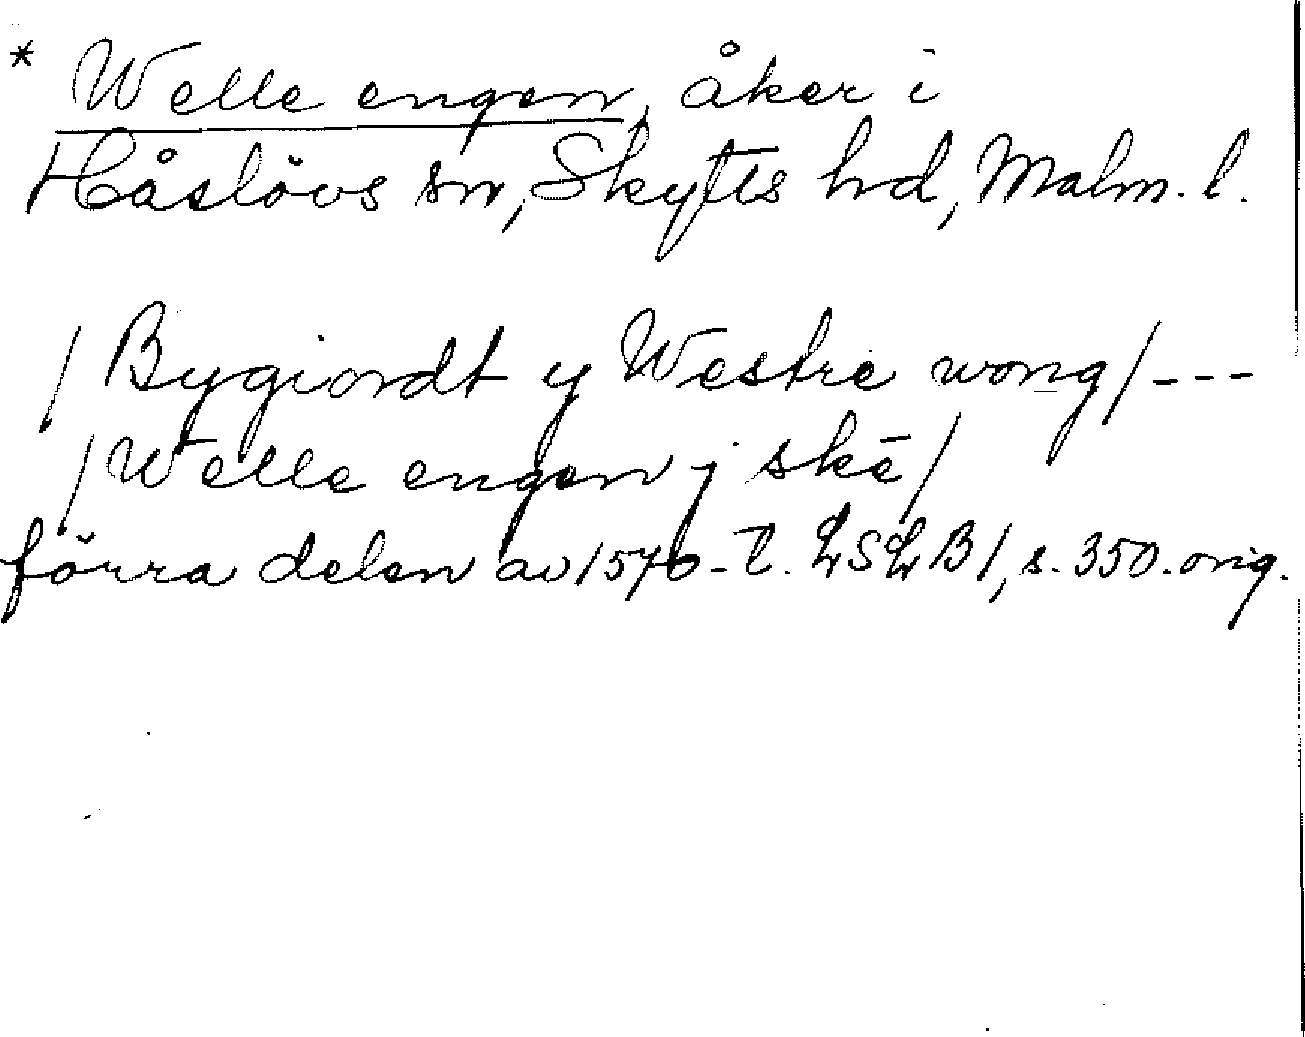 * Welle engen, åker i
Håslövs sn, Skytts hd, Malm. l.
/ Bygiordt y Westre wong / ---
/ Welle engen j skē /
förra delen av 1570-t. LSLB1, s. 350. orig.